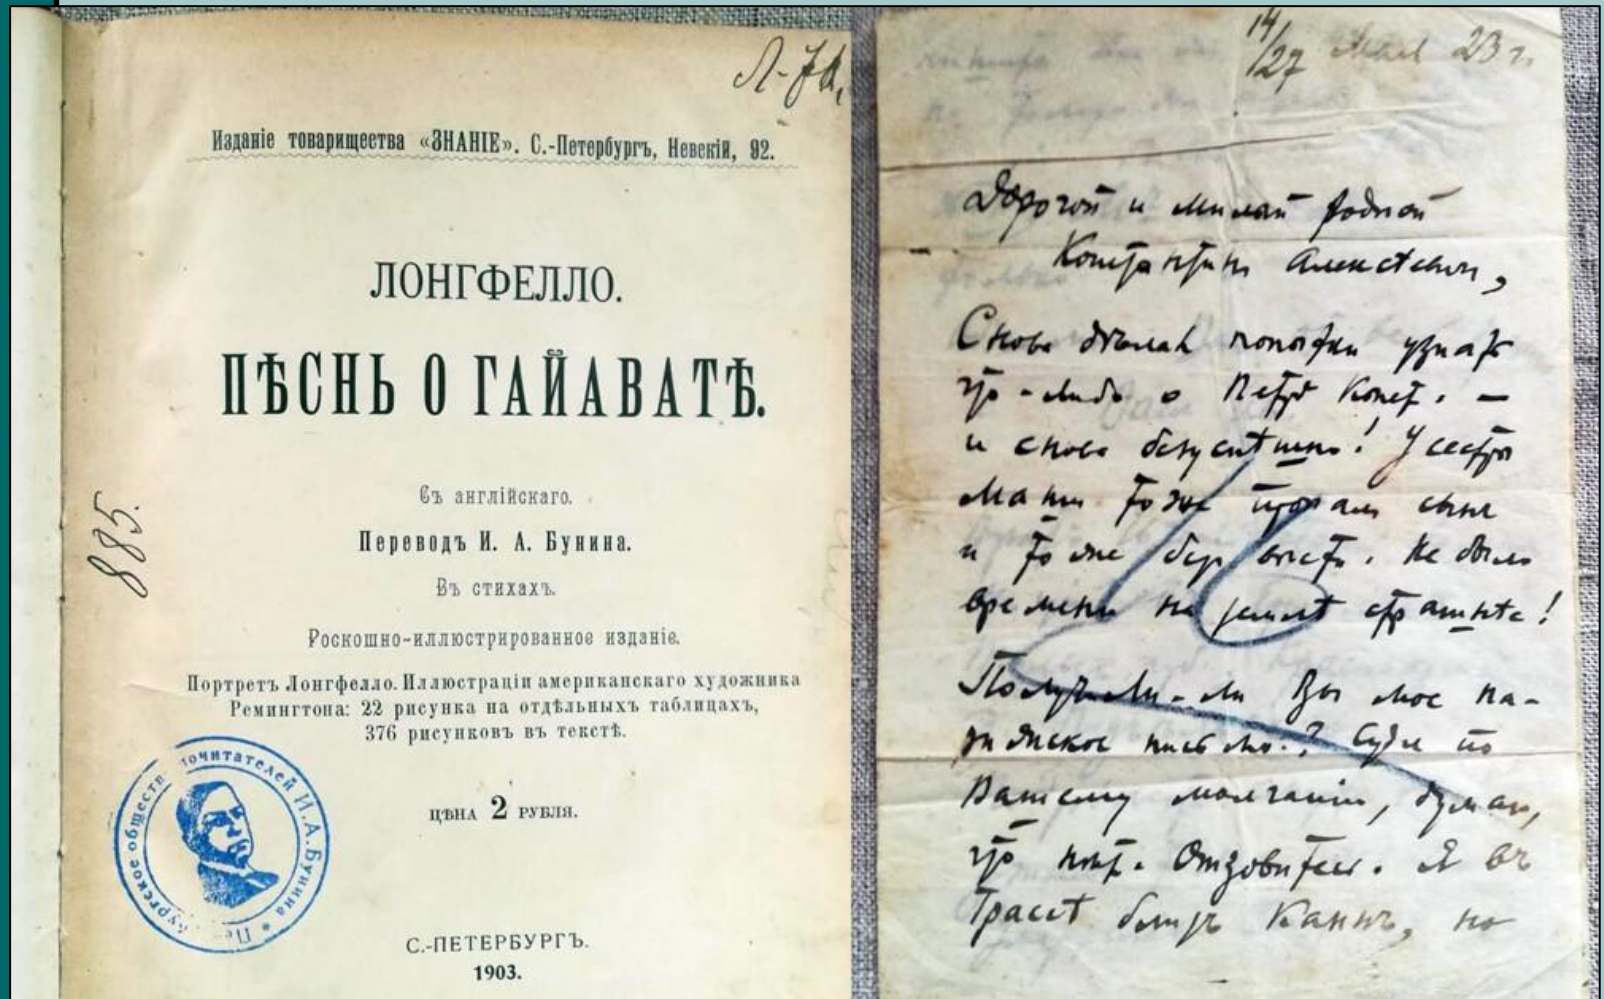 Л-74.
Изданіе товарищества «ЗНАНІЕ». С.-Петербургъ, Невскій, 92.
ЛОНГФЕЛЛО.
ПѢСНЬ О ГАЙАВАТѢ.
Съ англійскаго.
Переводъ И. А. Бунина.
Въ стихахъ.
Роскошно-иллюстрированное изданіе.
Портретъ Лонгфелло. Иллюстраціи американскаго художника
Ремингтона: 22 рисунка на отдѣльныхъ таблицахъ,
376 рисунковъ въ текстѣ.
ЦѢНА 2 РУБЛЯ.
С.-ПЕТЕРБУРГЪ.
1903.
885.
почитателей И.А.Бунина
14/27 Мая 23 г.
Дорогой и милый родной
Константинъ Алексѣевич,
Снова дѣлал попытки узнать
что-либо о Петрѣ Конст. —
и снова безуспѣшно! У сестры
Маши тоже пропал сынъ
и тоже без вѣсти. Не было
времени на землѣ страшнѣе!
Получили-ли Вы мое па-
рижское письмо? Судя по
Вашему молчанію, думаю,
что нѣт. Отзовитесь. Я въ
Грассѣ близъ Каннъ, но